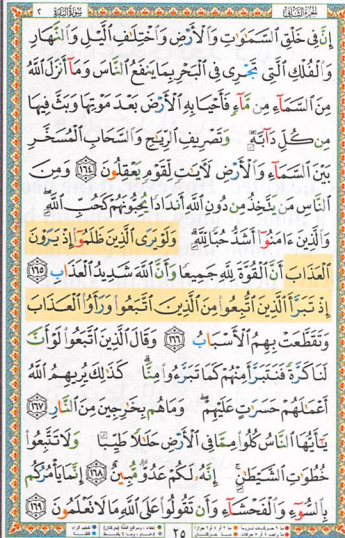 الجزء الثاني ٢ سورة البقرة
إِنَّ فِي خَلْقِ السَّمَٰوَٰتِ وَالْأَرْضِ وَاخْتِلَٰفِ الَّيْلِ وَالنَّهَارِ
وَالْفُلْكِ الَّتِي تَجْرِي فِي الْبَحْرِ بِمَا يَنفَعُ النَّاسَ وَمَآ أَنزَلَ اللَّهُ
مِنَ السَّمَآءِ مِن مَّآءٍ فَأَحْيَا بِهِ الْأَرْضَ بَعْدَ مَوْتِهَا وَبَثَّ فِيهَا
مِن كُلِّ دَآبَّةٍ وَتَصْرِيفِ الرِّيَٰحِ وَالسَّحَابِ الْمُسَخَّرِ
بَيْنَ السَّمَآءِ وَالْأَرْضِ لَءَايَٰتٍ لِّقَوْمٍ يَعْقِلُونَ ١٦٤ وَمِنَ
النَّاسِ مَن يَتَّخِذُ مِن دُونِ اللَّهِ أَندَادًا يُحِبُّونَهُمْ كَحُبِّ اللَّهِ
وَالَّذِينَ ءَامَنُوٓا أَشَدُّ حُبًّا لِّلَّهِ وَلَوْ يَرَى الَّذِينَ ظَلَمُوٓا إِذْ يَرَوْنَ
الْعَذَابَ أَنَّ الْقُوَّةَ لِلَّهِ جَمِيعًا وَأَنَّ اللَّهَ شَدِيدُ الْعَذَابِ ١٦٥
إِذْ تَبَرَّأَ الَّذِينَ اتُّبِعُوا مِنَ الَّذِينَ اتَّبَعُوا وَرَأَوُا الْعَذَابَ
وَتَقَطَّعَتْ بِهِمُ الْأَسْبَابُ ١٦٦ وَقَالَ الَّذِينَ اتَّبَعُوا لَوْ أَنَّ
لَنَا كَرَّةً فَنَتَبَرَّأَ مِنْهُمْ كَمَا تَبَرَّءُوا مِنَّا كَذَٰلِكَ يُرِيهِمُ اللَّهُ
أَعْمَٰلَهُمْ حَسَرَٰتٍ عَلَيْهِمْ وَمَا هُم بِخَٰرِجِينَ مِنَ النَّارِ ١٦٧
يَٰٓأَيُّهَا النَّاسُ كُلُوا مِمَّا فِي الْأَرْضِ حَلَٰلًا طَيِّبًا وَلَا تَتَّبِعُوا
خُطُوَٰتِ الشَّيْطَٰنِ إِنَّهُۥ لَكُمْ عَدُوٌّ مُّبِينٌ ١٦٨ إِنَّمَا يَأْمُرُكُم
بِالسُّوٓءِ وَالْفَحْشَآءِ وَأَن تَقُولُوا عَلَى اللَّهِ مَا لَا تَعْلَمُونَ ١٦٩
٢٥